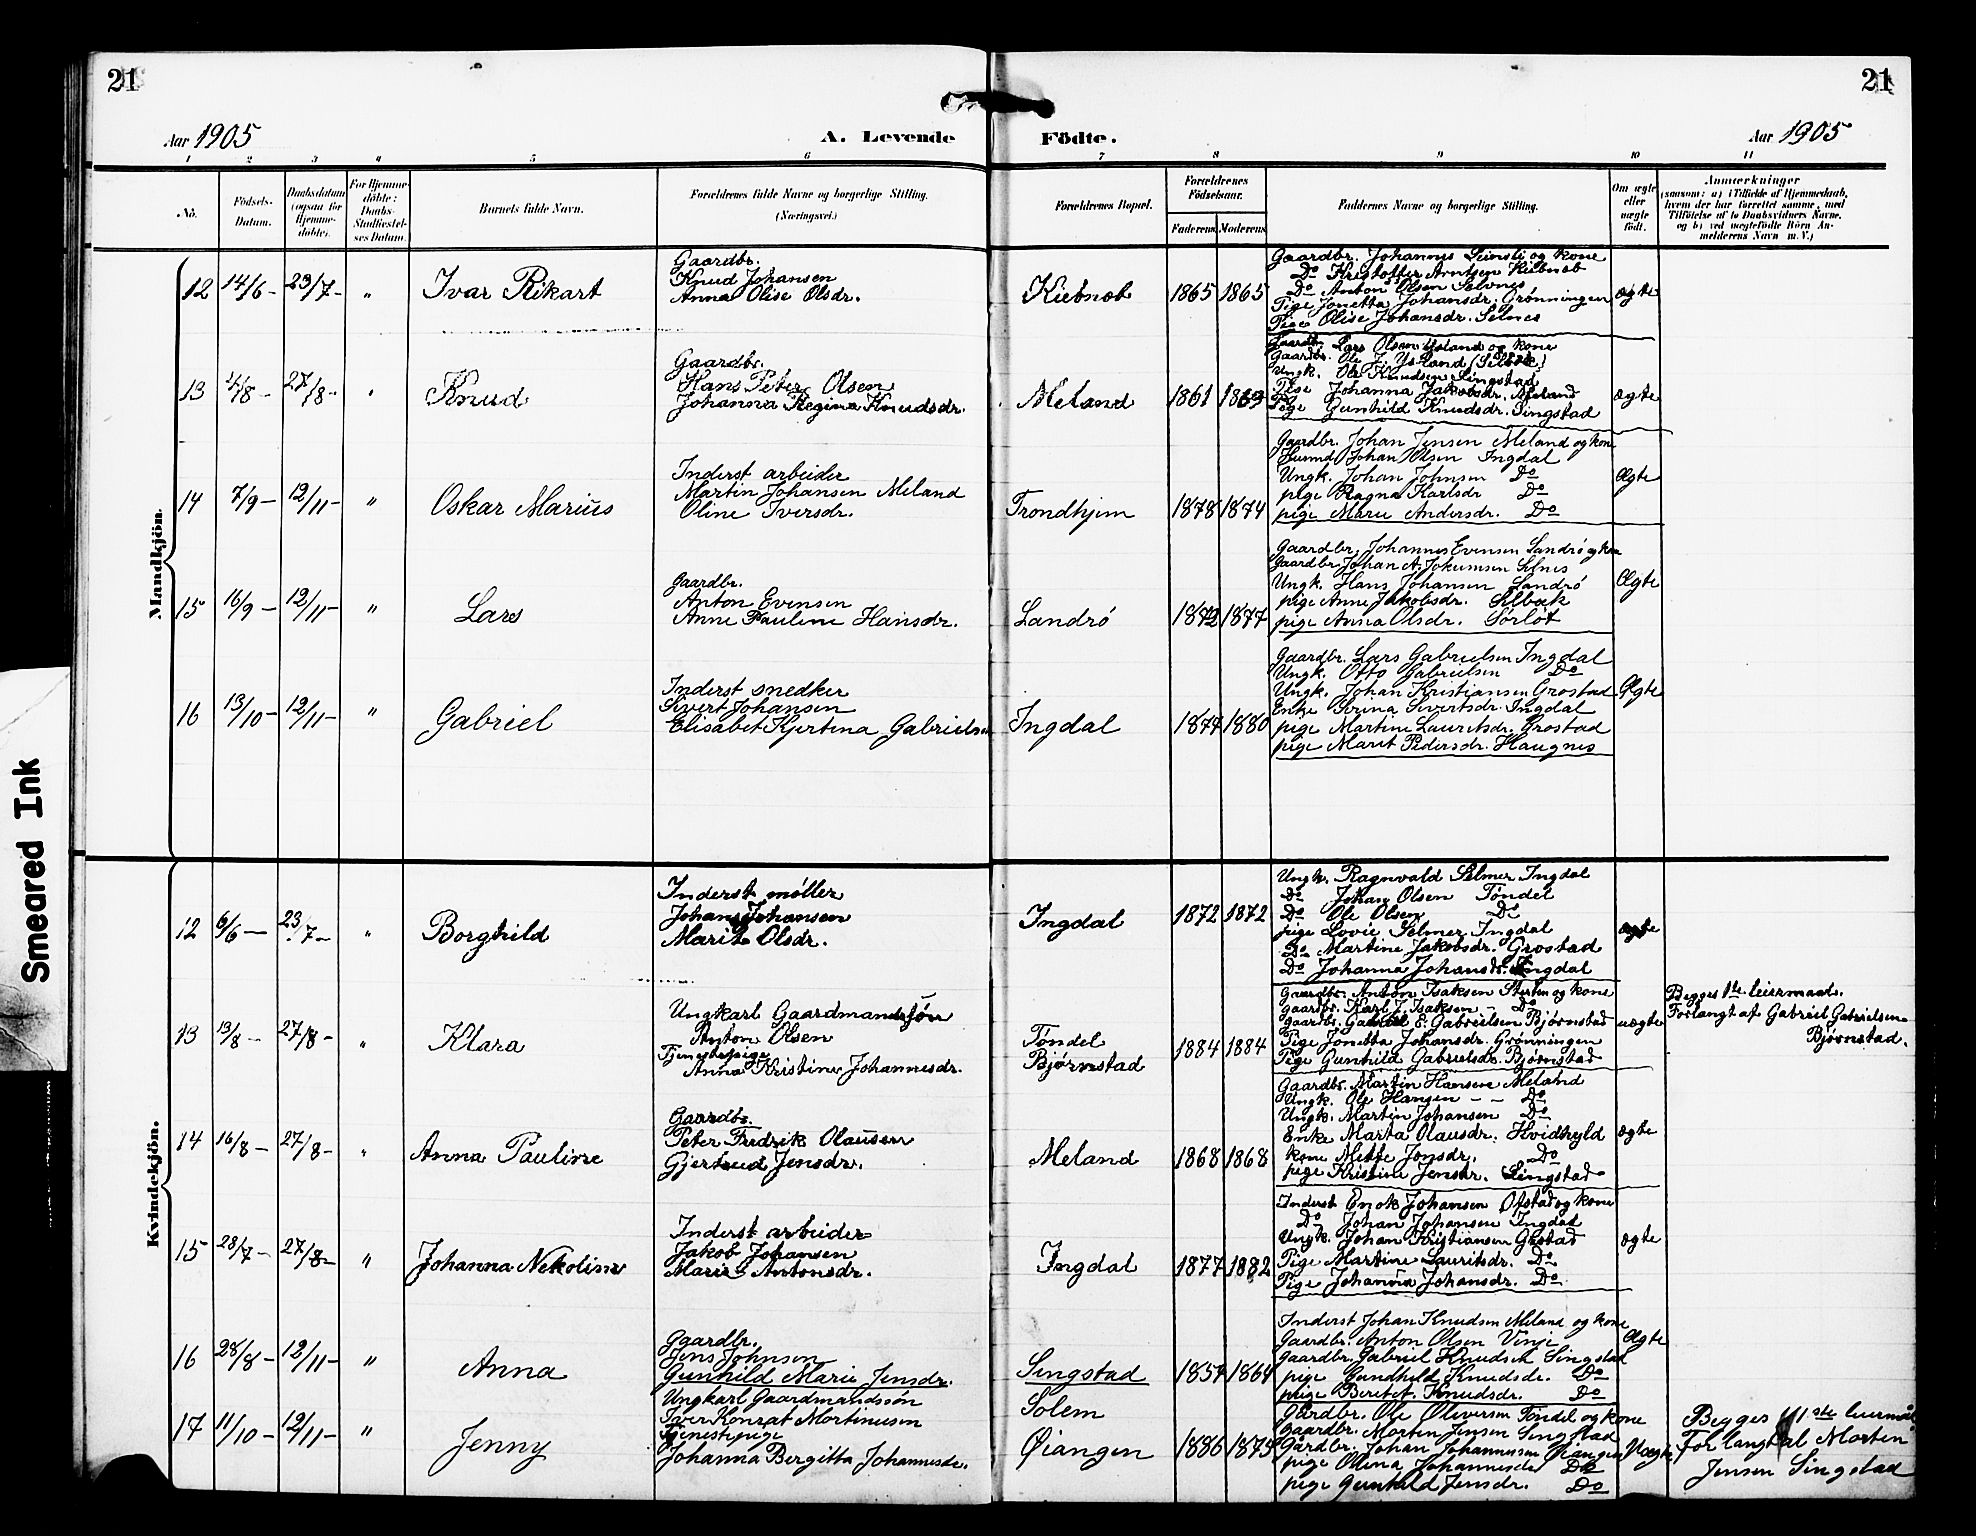 21
21
Aar 1905
A. Levende
Födte.
Aar 1905
1 2 3 4 5 6 7 8 9 10 11
No.
Födsels-Datum.
Daabsdatum (ogsaa for Hjemmedöbte).
For Hjemmedöbte: Daabs-Stadfæstelses Datum.
Barnets fulde Navn.
Forældrenes fulde Navne og borgerlige Stilling. (Næringsvei.)
Forældrenes Bopæl.
Forældrenes Födselsaar.
Faderens. Moderens.
Faddernes Navne og borgerlige Stilling.
Om ægte eller uægte födt.
Anmærkninger
(saasom: a) i Tilfælde af Hjemmedaab, hvem der har forrettet samme, med Tilföielse af to Daabsvidners Navne, og b) ved uægtefödte Börn Anmelderens Navn m. V.)
Mandkjön.
12 14/6 – 23/7 – " Ivar Rikart
Gaardbr.
Knud Johansen
Anna Olise Olsdr.
Kiebnæb 1865 1865
Gaardbr. Johannes Leinsli og kone
Do Kristoffer Arntsen Kiebnæb
Do Anton Olsen Selvnes
Pige Jonetta Johansdr. Grønningen
Pige Olise Johansdr. Selnes
ægte
13 4/8 – 27/8 – " Knud
Gaardbr.
Hans Peter Olsen
Johanna Regina Knudsdr.
Meland 1861 1869
Gaardbr. Lars Olsen Ysland og kone
Gaardbr. Ole J. Ysland (Selbæk)
Ungk. Ole Knudsen Singstad
Pige Johanna Jakobsdr. Meland
Pige Gunhild Knudsdr. Singstad
ægte
14 7/9 – 12/11 – " Oskar Marius
Inderst arbeider
Martin Johansen Meland
Oline Iversdr.
Trondhjem 1878 1874
Gaardbr. Johan Jensen Meland og kone
Husmd Johan Olsen Ingdal
Ungk. Johan Johnsen Do
pige Ragna Karlsdr Do
pige Marie Andersdr. Do
Ægte
15 16/9 – 12/11 – " Lars
Gaardbr.
Anton Evensen
Anne Pauline Hansdr.
Landrö 1872 1877
Gaardbr. Johannes Evensen Landrö og kone
Gaardbr. Johan A. Jokumsen Selnes
Ungk. Hans Johansen Landrö
pige Anne Jakobsdr. Selbæk
pige Anna Olsdr. Sörlöt
Ægte
16 13/10 – 12/11 – " Gabriel
Inderst snedker
Sivert Johansen
Elisabet Kjertina Gabrielsen
Ingdal 1874 1880
Gaardbr. Lars Gabrielsen Ingdal
Ungk. Otto Gabrielsen Do
Ungk. Johan Kristiansen Grostad
Enke Serina Sivertsdr. Ingdal
pige Martine Lauritsdr. Grostad
pige Marit Pedersdr. Haugnes
Ægte
Kvindekjön.
12 6/6 – 23/7 – " Borghild
Inderst møller
Johan Johansen
Marit Olsdr.
Ingdal 1872 1872
Ungk. Ragnvald Selmer Ingdal
Do Johan Olsen Tøndel
Do Ole Olsen Do
pige Lovie Selmer Ingdal
Do Martine Jakobsdr. Grostad
Do Johanna Johansdr. Ingdal
ægte
13 13/8 – 27/8 – " Klara
Ungkarl Gaardmandssøn
Anton Olsen
Tjenestepige
Anna Kristine Johannesdr.
Tøndel
Bjørnstad
1884 1884
Gaardbr. Anton Isaksen Sterten og kone
Gaardbr. Karl J. Isaksen – Do
Gaardbr. Gabriel E. Gabrielsen Bjørnstad
Pige Jonetta Johansdr. Grønningen
Pige Gunhild Gabrielsdr. Bjørnstad
uægte
Begges 1ste leiermaal.
Forlangt af Gabriel Gabrielsen
Bjørnstad.
14 16/8 – 27/8 – " Anna Pauline
Gaardbr.
Peter Fredrik Olausen
Gjertrud Jensdr.
Meland 1868 1868
Gaardbr. Martin Hansen Meland
Ungk. Ole Hansen – – Do
Ungk. Martin Johansen Do
Enke Marta Olausdr. Hvidhyld
kone Mette Jonsdr. Do
pige Kristine Jensdr. Singstad
ægte
15 28/7 – 27/8 – " Johanna Nekoline
Inderst arbeider
Jakob Johansen
Marie Antonsdr.
Ingdal 1877 1882
Inderst Enok Johansen Ofstad og kone
Do Johan Johansen Ingdal
Ungk. Johan Kristiansen Grostad
Pige Martine Lauritsdr. Do
Pige Johanna Johansdr. Do
ægte
16 28/8 – 12/11 – " Anna
Gaardbr.
Jens Johnsen
Gunhild Marie Jensdr.
Singstad 1854 1864
Inderst Johan Knudsen Meland og kone
Gaardbr. Anton Olsen Vinje
Gaardbr. Gabriel Knudsen Singstad
pige Gundhild Knudsdr. Do
pige Beret A. Knudsdr. Do
Ægte
17 11/10 – 12/11 – " Jenny
Ungkarl Gaardmandssön
Iver Konrat Mortinusen
Tjenestepige
Johanna Bergitta Johannesdr.
Solem
Øiangen
1886 1875
Gaardbr. Ole Oliversen Tøndel og kone
Gaardbr. Morten Jensen Singstad
Gardbr. Johan Johannessen Øiangen
pige Olina Johannesdr Do
pige Gunhild Jensdr. Do
Uægte
Begges 1ste leiermål
Forlangt al Morten
Jensen Singstad
Smeared Ink